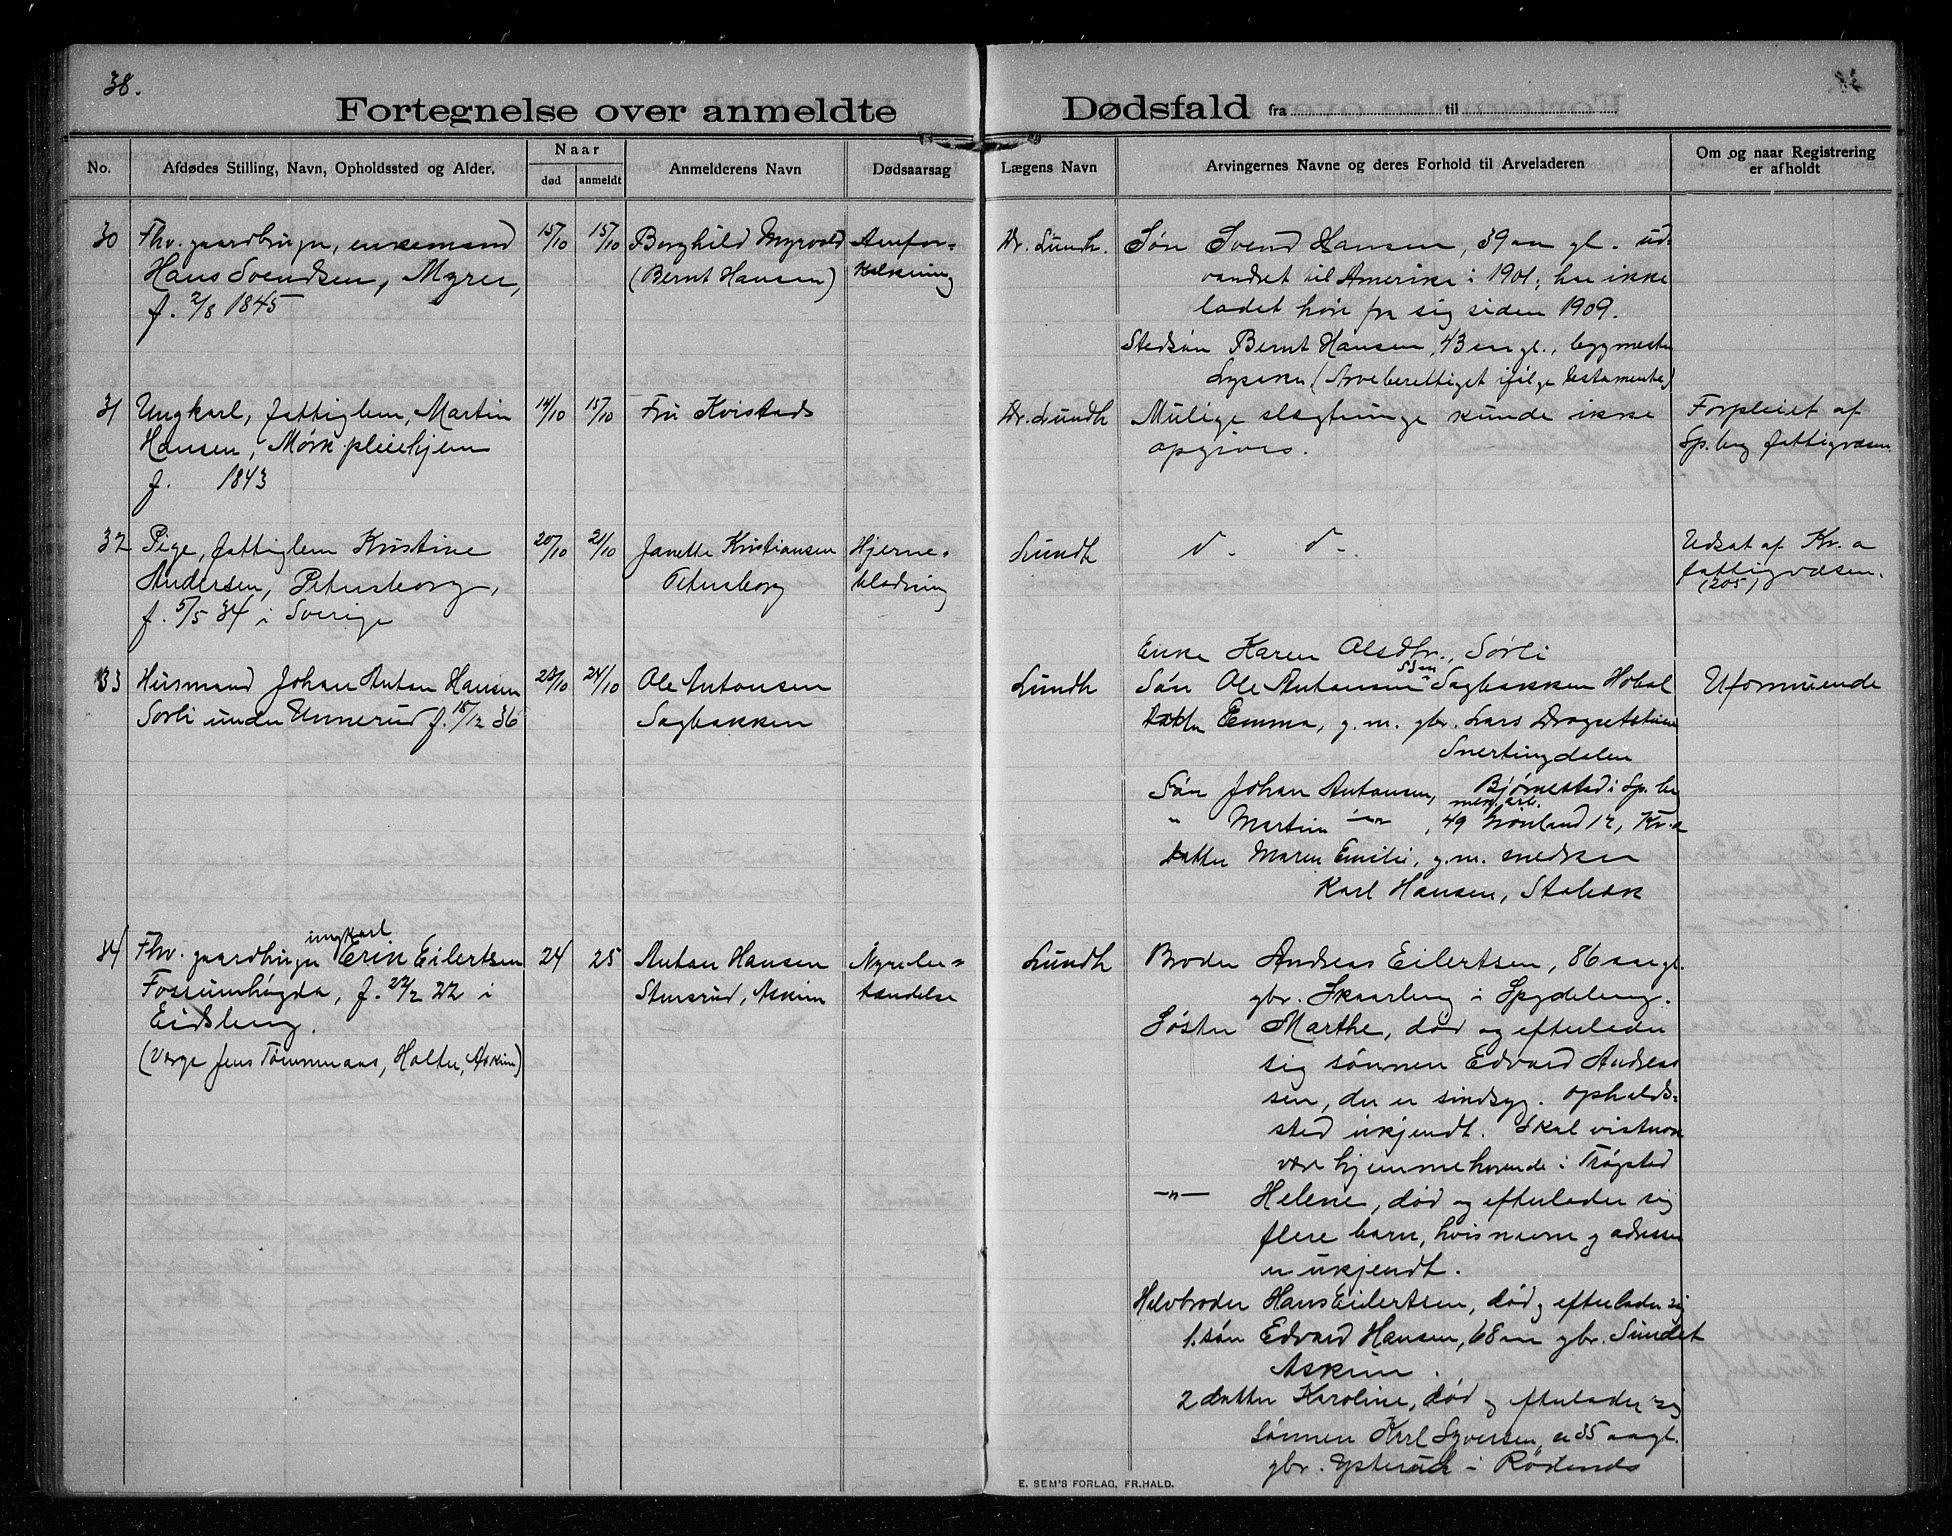 38.
Fortegnelse over anmeldte Dødsfald fra til
No.
Afdødes Stilling, Navn, Opholdssted og Alder.
Naar
død
anmeldt
Anmelderens Navn
Dødsaarsag
Lægens Navn
Arvingernes Navne og deres Forhold til Arveladeren
Om og naar Registrering
er afholdt
30
Fhv. gaardbruger, enkemand
Hans Svendsen, Myrer,
f. 2/8 1845
15/10
15/10
Borghild Myrvold
(Bernt Hansen)
Aarefor-
kalkning
Dr. Lundh.
Søn Svend Hansen, 39 aar gl. ud-
vandret til Amerika i 1901, har ikke
ladet høre fra sig siden 1909.
Stedsøn Bernt Hansen, 43 aar gl., byggmester
Lysaker (Arveberettiget ifølge testamente)
31
Ungkarl, fattiglem, Martin
Hansen, Mørk pleiehjem
f. 1843
14/10
15/10
Fru Kvistad
Dr. Lundh
Mulige slægtninge kunde ikke
opgives.
Forpleiet af
Sp.berg fattigvæsen.
32
Pige, fattiglem Kristine
Andersen, Petersborg,
f. 5/5 34 i Sverige
20/10
21/10
Janette Kristiansen
Petersborg
Hjerne-
blødning
Lundh
d- d-.
Udsat af Kr.a
fattigvæsen.
(205)
33
Husmand Johan Anton Hansen
Sørli under Unnerud f. 15/12 36
23/10
24/10
Ole Antonsen
Sagbakken
Lundh
Enke Karen Olsdtr., Sørli
Søn Ole Antonsen 55 aar Sagbakken Hobøl
Datter Emma, g. m. gbr. Lars
Snertingdalen
Søn Johan Antonsen, Bjørnestad i Sp.berg
" Martin —"— , 49 Grønland 12, Kr.a
Datter Maren Emilie, g.m. snedker
Karl Hansen, Stabæk
Uformuende
34
Fhv. gaardbruger ungkarl Erik Eilertsen
Fossumhøgda, f. 22/2 22 i
Eidsberg.
(Verge Jens Tømmeraas, Holter, Askim)
24
25
Anton Hansen
Stensrud, Askim
Nyrebe-
tændelse
Lundh
Broder Andreas Eilertsen, 86 aar gl.
gbr. Skaarberg i Spydeberg.
Søster Marthe, død og efterlader
sig sønnen Edvard Andrea-
sen, der er sindsyg. Opholds-
sted ukjendt. Skal vistnok
være hjemmehørende i Trøgstad
—"— Helene, død og efterlader sig
flere barn, hvis navne og adresser
er ukjendt.
Halvbroder Hans Eilertsen, død og efterlader sig
1. søn Edvard Hansen, 68 aar gbr. Sundet
Askim.
2 datter Karoline, død og efterlader sig
Sønnen Karl Syversen, ca 35 aar gl.
gbr. Ysterud i Rødenes
E. SEM'S FORLAG, FR.HALD.